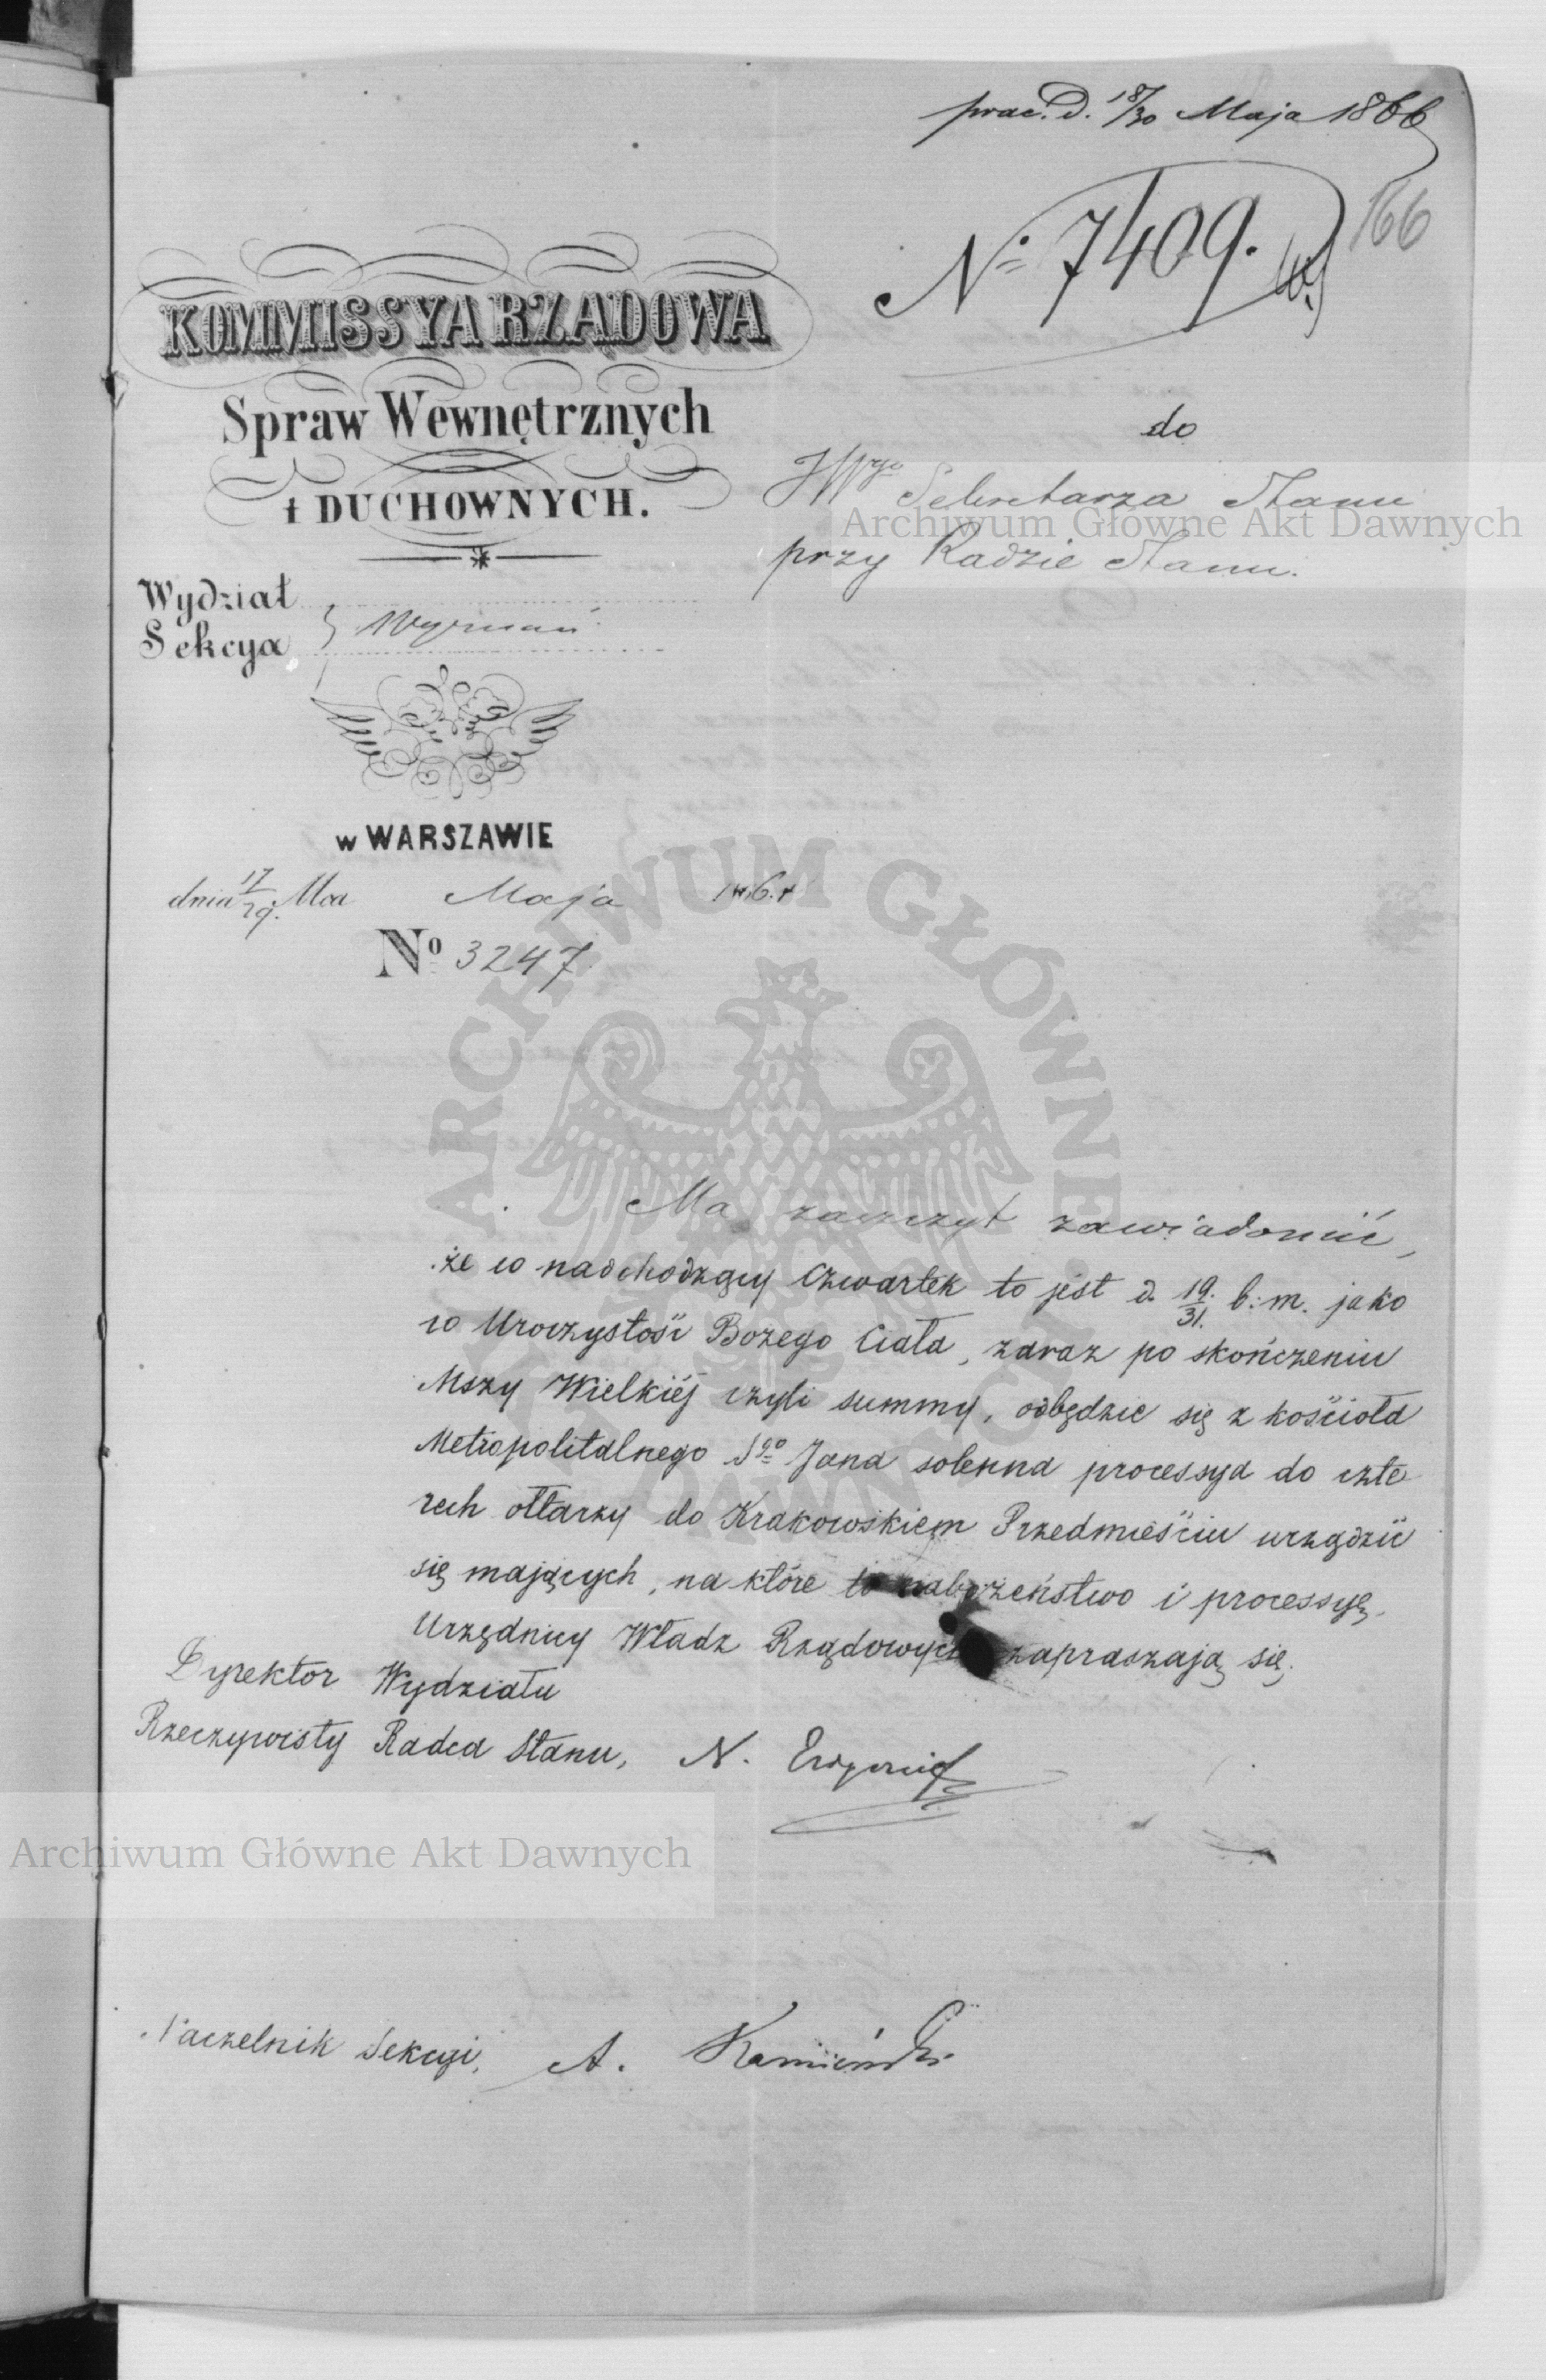 prae. d. 18/30 Maja 1866
№ 7409.
166
KOMMISSYA RZĄDOWA
Spraw Wewnętrznych
i DUCHOWNYCH.
do
JWgo Sekretarza Stanu
przy Radzie Stanu.
Wydział
Sekcya } Wyznań
w WARSZAWIE
dnia 17/29. Mca Maja 186
No 3247.
Ma zaszczyt zawiadomić,
że w nadchodzący Czwartek to jest d. 19/31. b: m. jako
w Uroczystość Bożego Ciała, zaraz po skończeniu
Mszy Wielkiéj czyli summy, odbędzie się z kościoła
Metropolitalnego Sgo Jana solenna processya do czte-
rech ołtarzy do Krakowskiem Przedmieściu urządzić
się mających, na które to nabożeństwo i processyę,
Urzędnicy Władz Rządowych zapraszają się.
Dyrektor Wydziału
Rzeczywisty Radca Stanu, N.
Naczelnik Sekcyi, A. Kamiński
Archiwum Główne Akt Dawnych
Archiwum Główne Akt Dawnych
ARCHIWUM GŁÓWNE AKT DAWNYCH